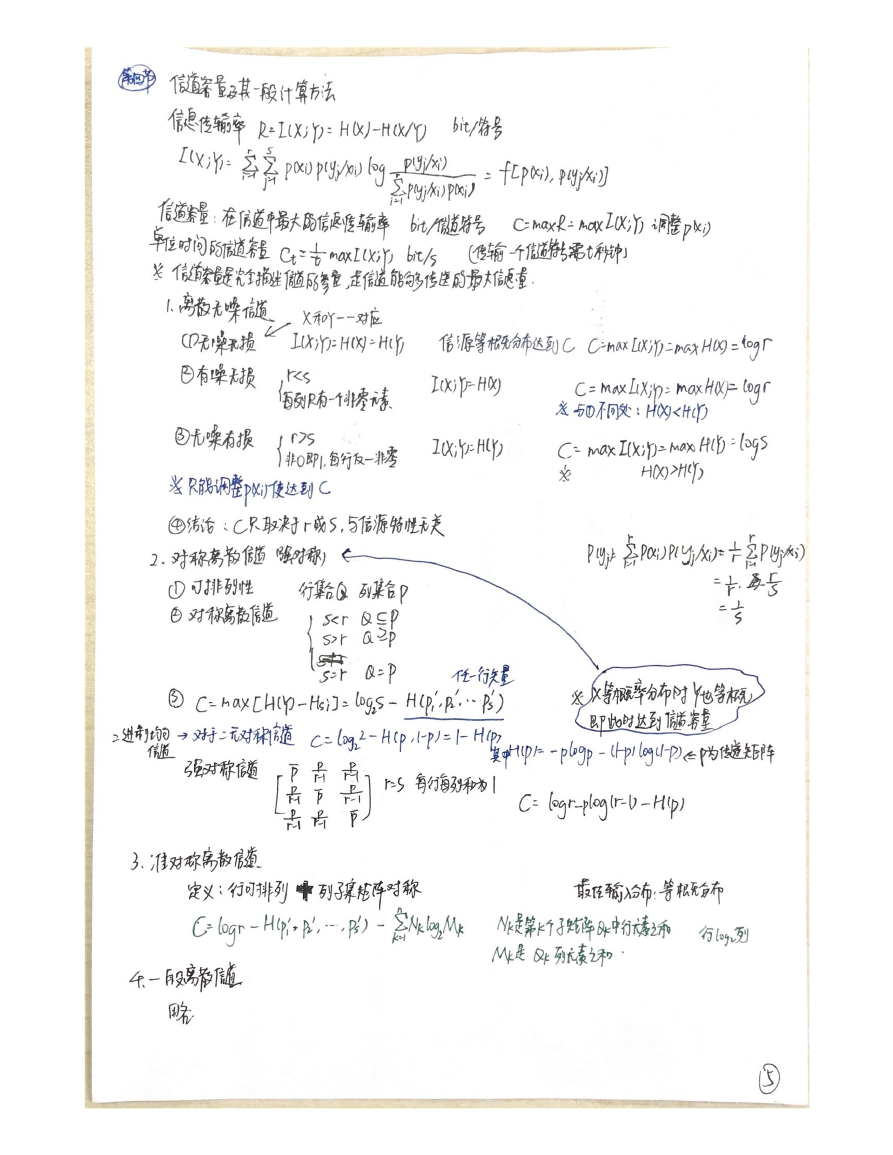 第四节 信道容量及其一般计算方法
信息传输率 R=I(X;Y)=H(X)-H(X/Y) bit/符号
I(X;Y)= Σ_{i=1}^{r} Σ_{j=1}^{s} p(xi)p(yj/xi) log p(yj/xi) / Σ_{i=1}^{r} p(yj/xi)p(xi) = f[p(xi), p(yj/xi)]
信道容量：在信道中最大的信息传输率 bit/信道符号 C=maxR=maxI(X;Y) 调整p(xi)
单位时间的信道容量 Ct=1/t maxI(X;Y) bit/s (传输一个信道符号需t秒钟)
※ 信道容量是完全描述信道的参量,是信道能够传送的最大信息量.
1. 离散无噪信道
X和Y一一对应
①无噪无损 I(X;Y)=H(X)=H(Y) 信源等概率分布达到C C=maxI(X;Y)=maxH(X)=logr
②有噪无损 { r<s 每列只有一个非零元素 I(X;Y)=H(X) C=maxI(X;Y)=maxH(X)=logr
※与①不同处：H(X)<H(Y)
③无噪有损 { r>s 非0即1,每行仅一非零 I(X;Y)=H(Y) C=maxI(X;Y)=maxH(Y)=logs
※ H(X)>H(Y)
※ 只能调整p(xi)使达到C
④结论：C只取决于r或s,与信源特性无关
2. 对称离散信道 (强对称)
p(yj)=Σ_{i=1}^{r} p(xi)p(yj/xi)=1/r Σ_{i=1}^{r} p(yj/xi)
=1/r · r/s
=1/s
① 可排列性 行集合Q 列集合P
② 对称离散信道 { s<r Q⊆P
s>r Q⊇P
s=r Q=P
任一行矢量
③ C=max[H(Y)-Hsi]=log₂s-H(p₁',p₂',…ps')
※ X等概率分布时Y也等概率
即此时达到信道容量
二进制均匀信道 → 对于二元对称信道 C=log₂2-H(p,1-p)=1-H(p)
其中H(p)=-plogp-(1-p)log(1-p) ← P为传递矩阵
强对称信道 [ p̄ p/r-1 p/r-1
p/r-1 p̄ p/r-1
p/r-1 p/r-1 p̄ ] r=s 每行每列和为1
C=logr-plog(r-1)-H(p)
3. 准对称离散信道
定义：行可排列 列子集矩阵对称 最佳输入分布:等概率分布
C=logr-H(p₁',p₂',…,ps')-Σ_{k=1}^{n} Nklog₂Mk Nk是第k个子矩阵Qk中行元素之和 行log₂列
Mk是Qk列元素之和.
4. 一般离散信道
略.
⑤